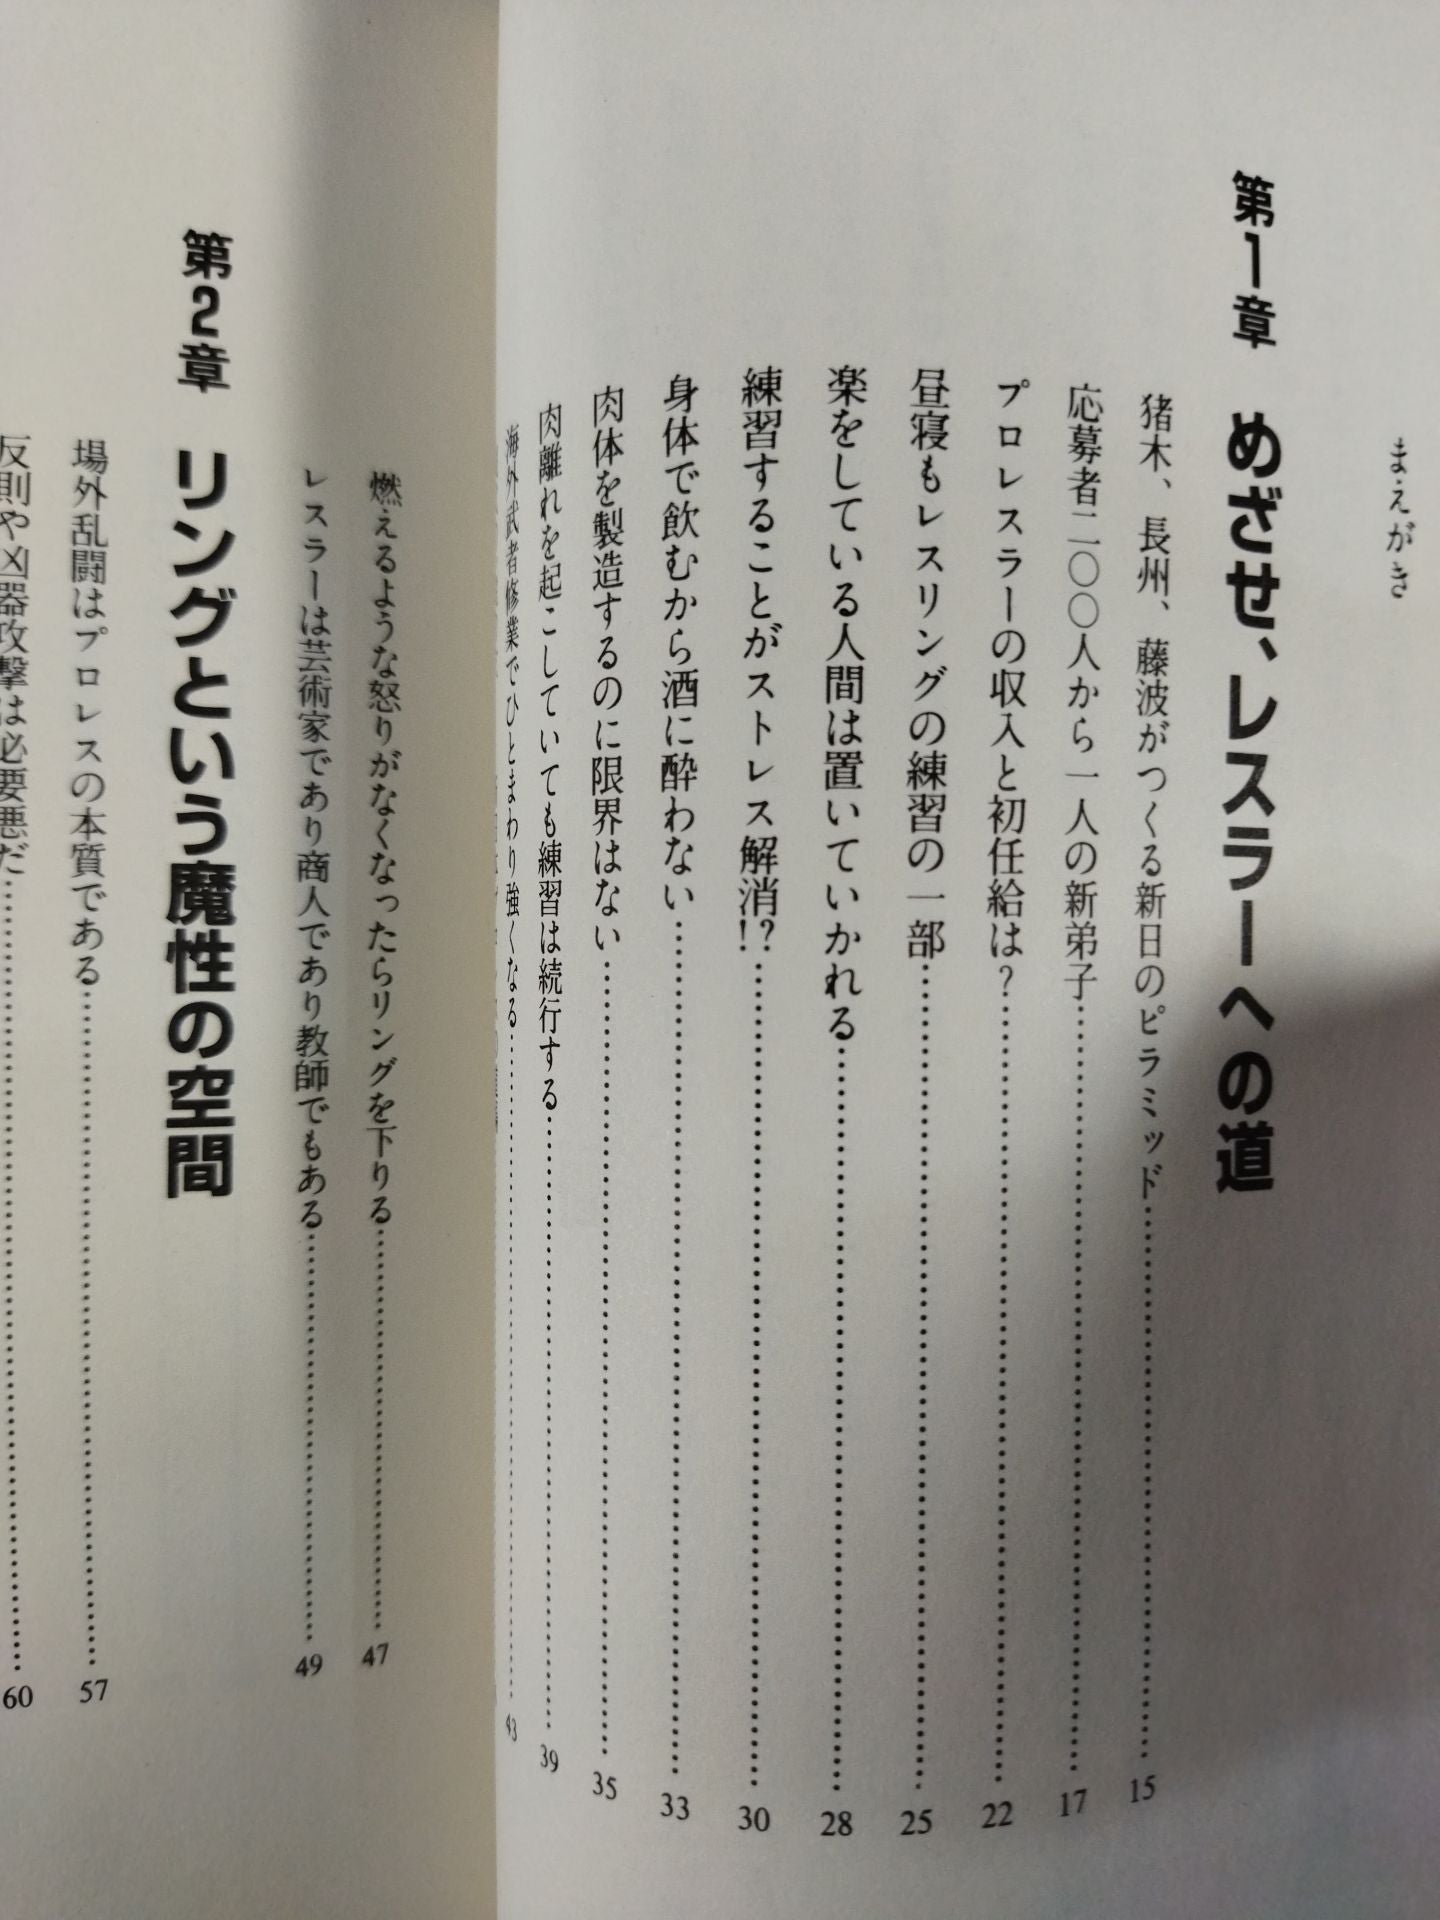 まえがき
第1章 めざせ、レスラーへの道
猪木、長州、藤波がつくる新日のピラミッド…………15
応募者二〇〇人から一人の新弟子…………17
プロレスラーの収入と初任給は？…………22
昼寝もレスリングの練習の一部…………25
楽をしている人間は置いていかれる…………28
練習することがストレス解消!?…………30
身体で飲むから酒に酔わない…………33
肉体を製造するのに限界はない…………35
肉離れを起こしていても練習は続行する…………39
海外武者修業でひとまわり強くなる…………43
燃えるような怒りがなくなったらリングを下りる…………47
レスラーは芸術家であり商人であり教師でもある…………49
第2章 リングという魔性の空間
場外乱闘はプロレスの本質である…………57
反則や凶器攻撃は必要悪だ…………60